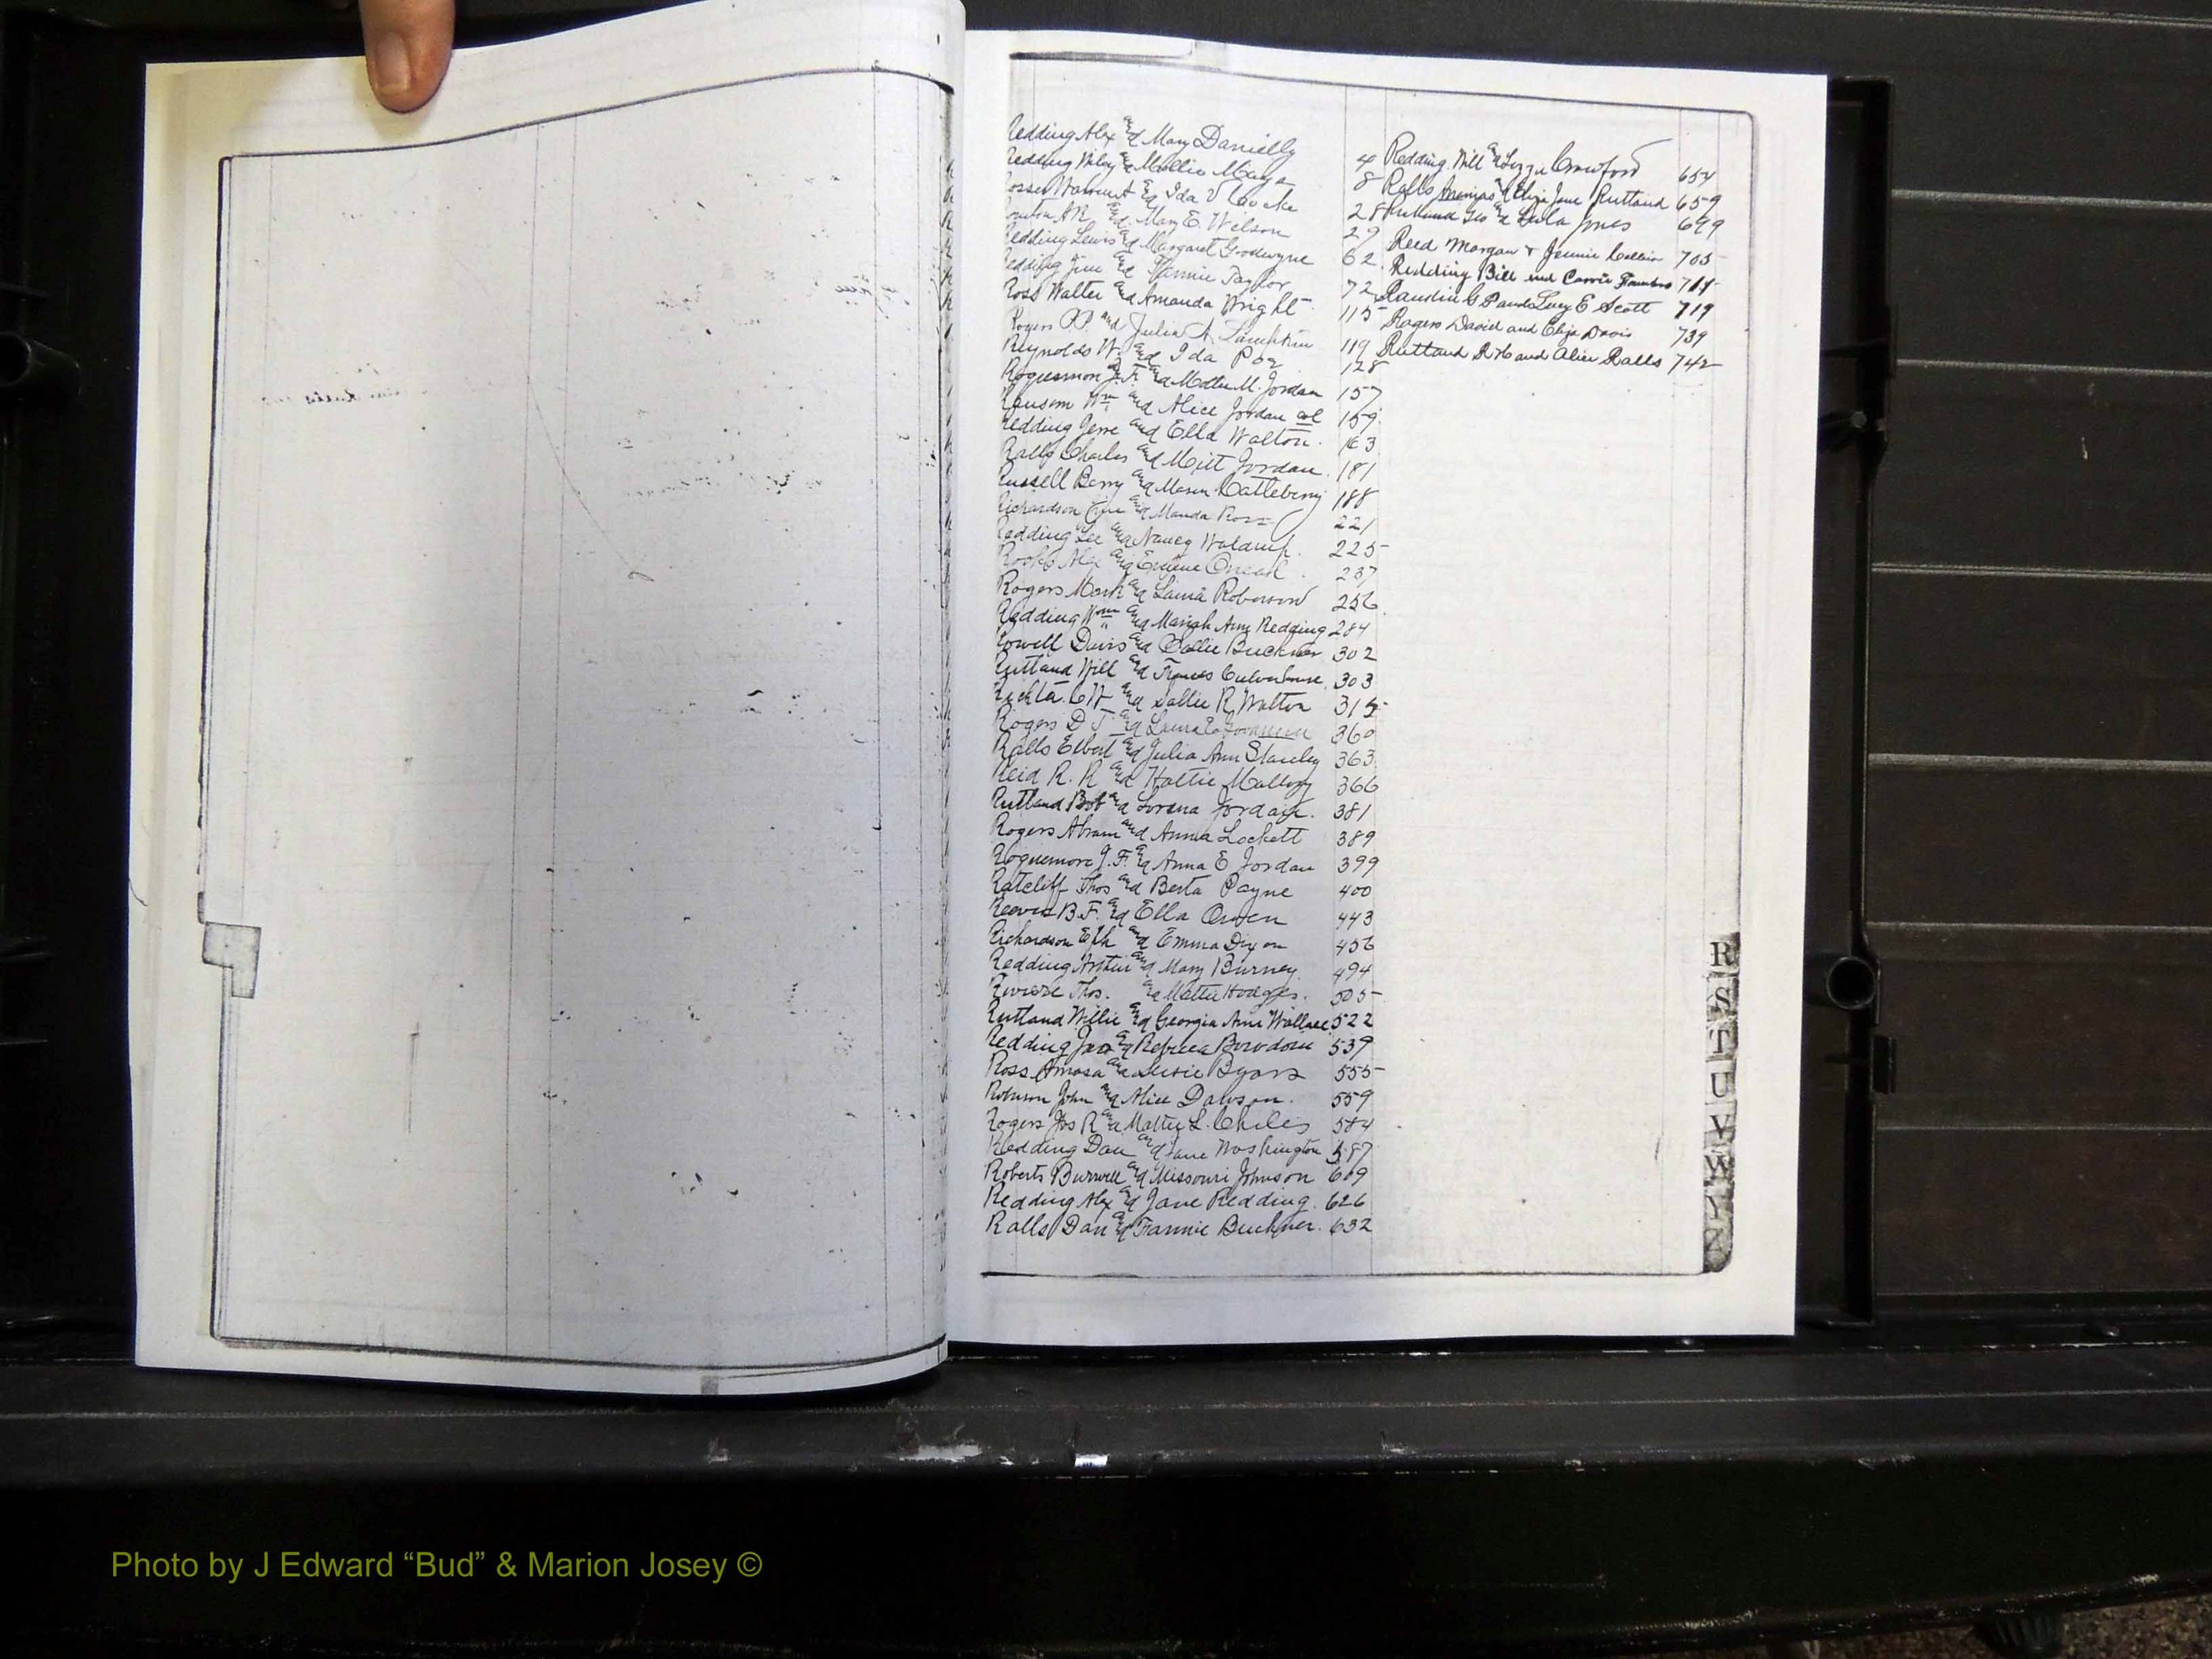 Redding Alex and Mary Danielly 4
Redding Wiley and Mollie Mays 8
Rosser and Ida V Cooke 28
A R and Mary E. Wilson 29
Redding Lewis and Margaret Goodwyne 62
Redding Jim and Fannie Taylor 72
Ross Walter and Amanda Wright 115
Rogers P.P. and Julia A. Lumpkin 119
Reynolds W. and Ida Poe 128
J. F. and M. Jordan 157
Ransom Wm and Alice Jordan col 159
Redding Jesse and Ella Walton. 163
Ralls Charles and Mitt Jordan. 181
Russell Berry and Castleberry 188
Richardson and Manda Ross 221
Redding Lee and Nancy Waldrup. 225
Rooks Alex and Oneal 237
Rogers Mark and Laura Roberson 256
Redding Wm and Mariah Ann Redding 284
Rowell Davis and Callie Buckner 302
Rutland Will and Frances Culverhouse. 303
C W and Sallie R. Walton 315
Rogers D J and Laura 360
Ralls Elbert and Julia Ann Stanley 363
Reid R. R and Hattie Mallory 366
Rutland Bob and Lorena Jordan. 381
Rogers Abram and Anna Lockett 389
Roquemore J. F. and Anna E Jordan 399
Ratcliff Thos and Berta Payne 400
Reeves B.F. and Ella Owen 443
Richardson Eph and Emma Dixon 456
Redding Arthur and Mary Burney. 494
Riviere Thos. and Mattie Hodges. 505
Rutland Willie and Georgia Ann Wallace 522
Redding Jas and Rebecca Bowdoin 539
Ross Amasa and Susie Byars 555
Robison John and Alice Dawson. 559
Rogers Jos R and Mattie L. Childs 584
Redding Dan and Jane Washington 587
Roberts Burwell and Missouri Johnson 609
Redding Alex and Jane Redding. 626
Ralls Dan and Fannie Buckner. 632
Redding Will and Lizzie Crowford 654
Ralls Ananias & Eliza Jane Rutland 659
Rutland Geo and Lula Jones 699
Reed Morgan & Jennie Collier 705
Redding Bill and Carrie Fambro 711
G P and Lucy E Scott 719
Rogers David and Eliza Davis 739
Rutland R H and Alice Ralls 742
R
S
T
U
V
W
Y
Z
Photo by J Edward “Bud” & Marion Josey ©